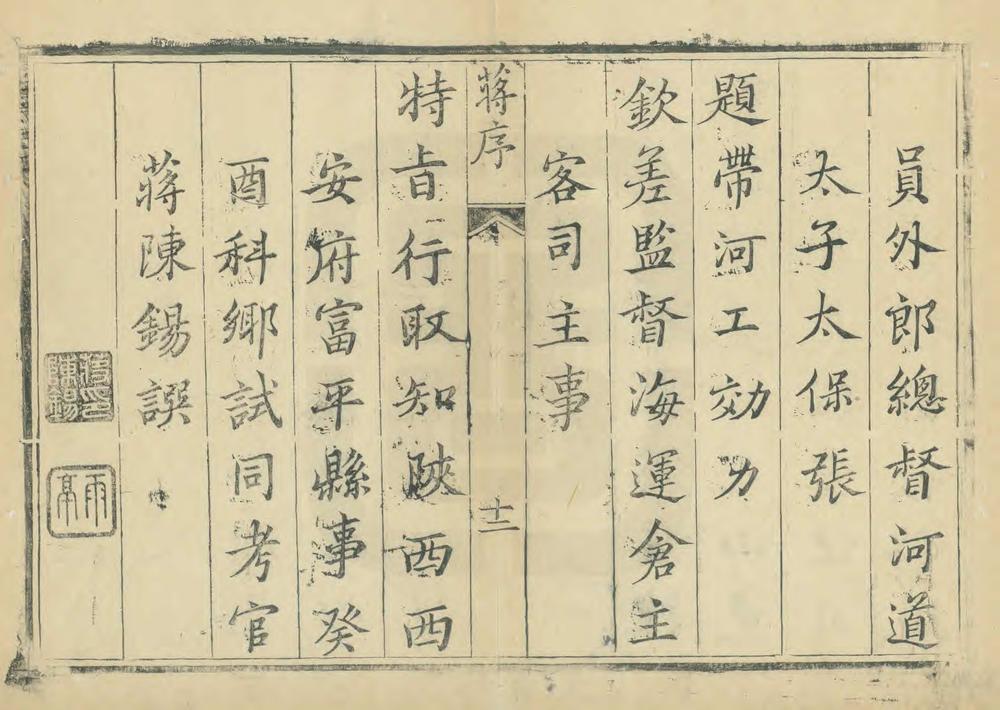 員外郎總督河道
太子太保張
題帶河工効力
欽差監督海運倉主
客司主事
蔣序
十二
特旨行取知陝西西
安府富平縣事癸
酉科鄉試同考官
蔣陳錫譔
蔣印陳錫
雨亭